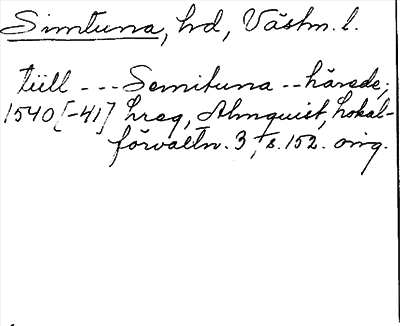 Simtuna, hd, Västm. l.
till --- Semituna -- härede;
1540[-41] hreg, Almquist, Lokal-
förvaltn. 3, s. 152. orig.